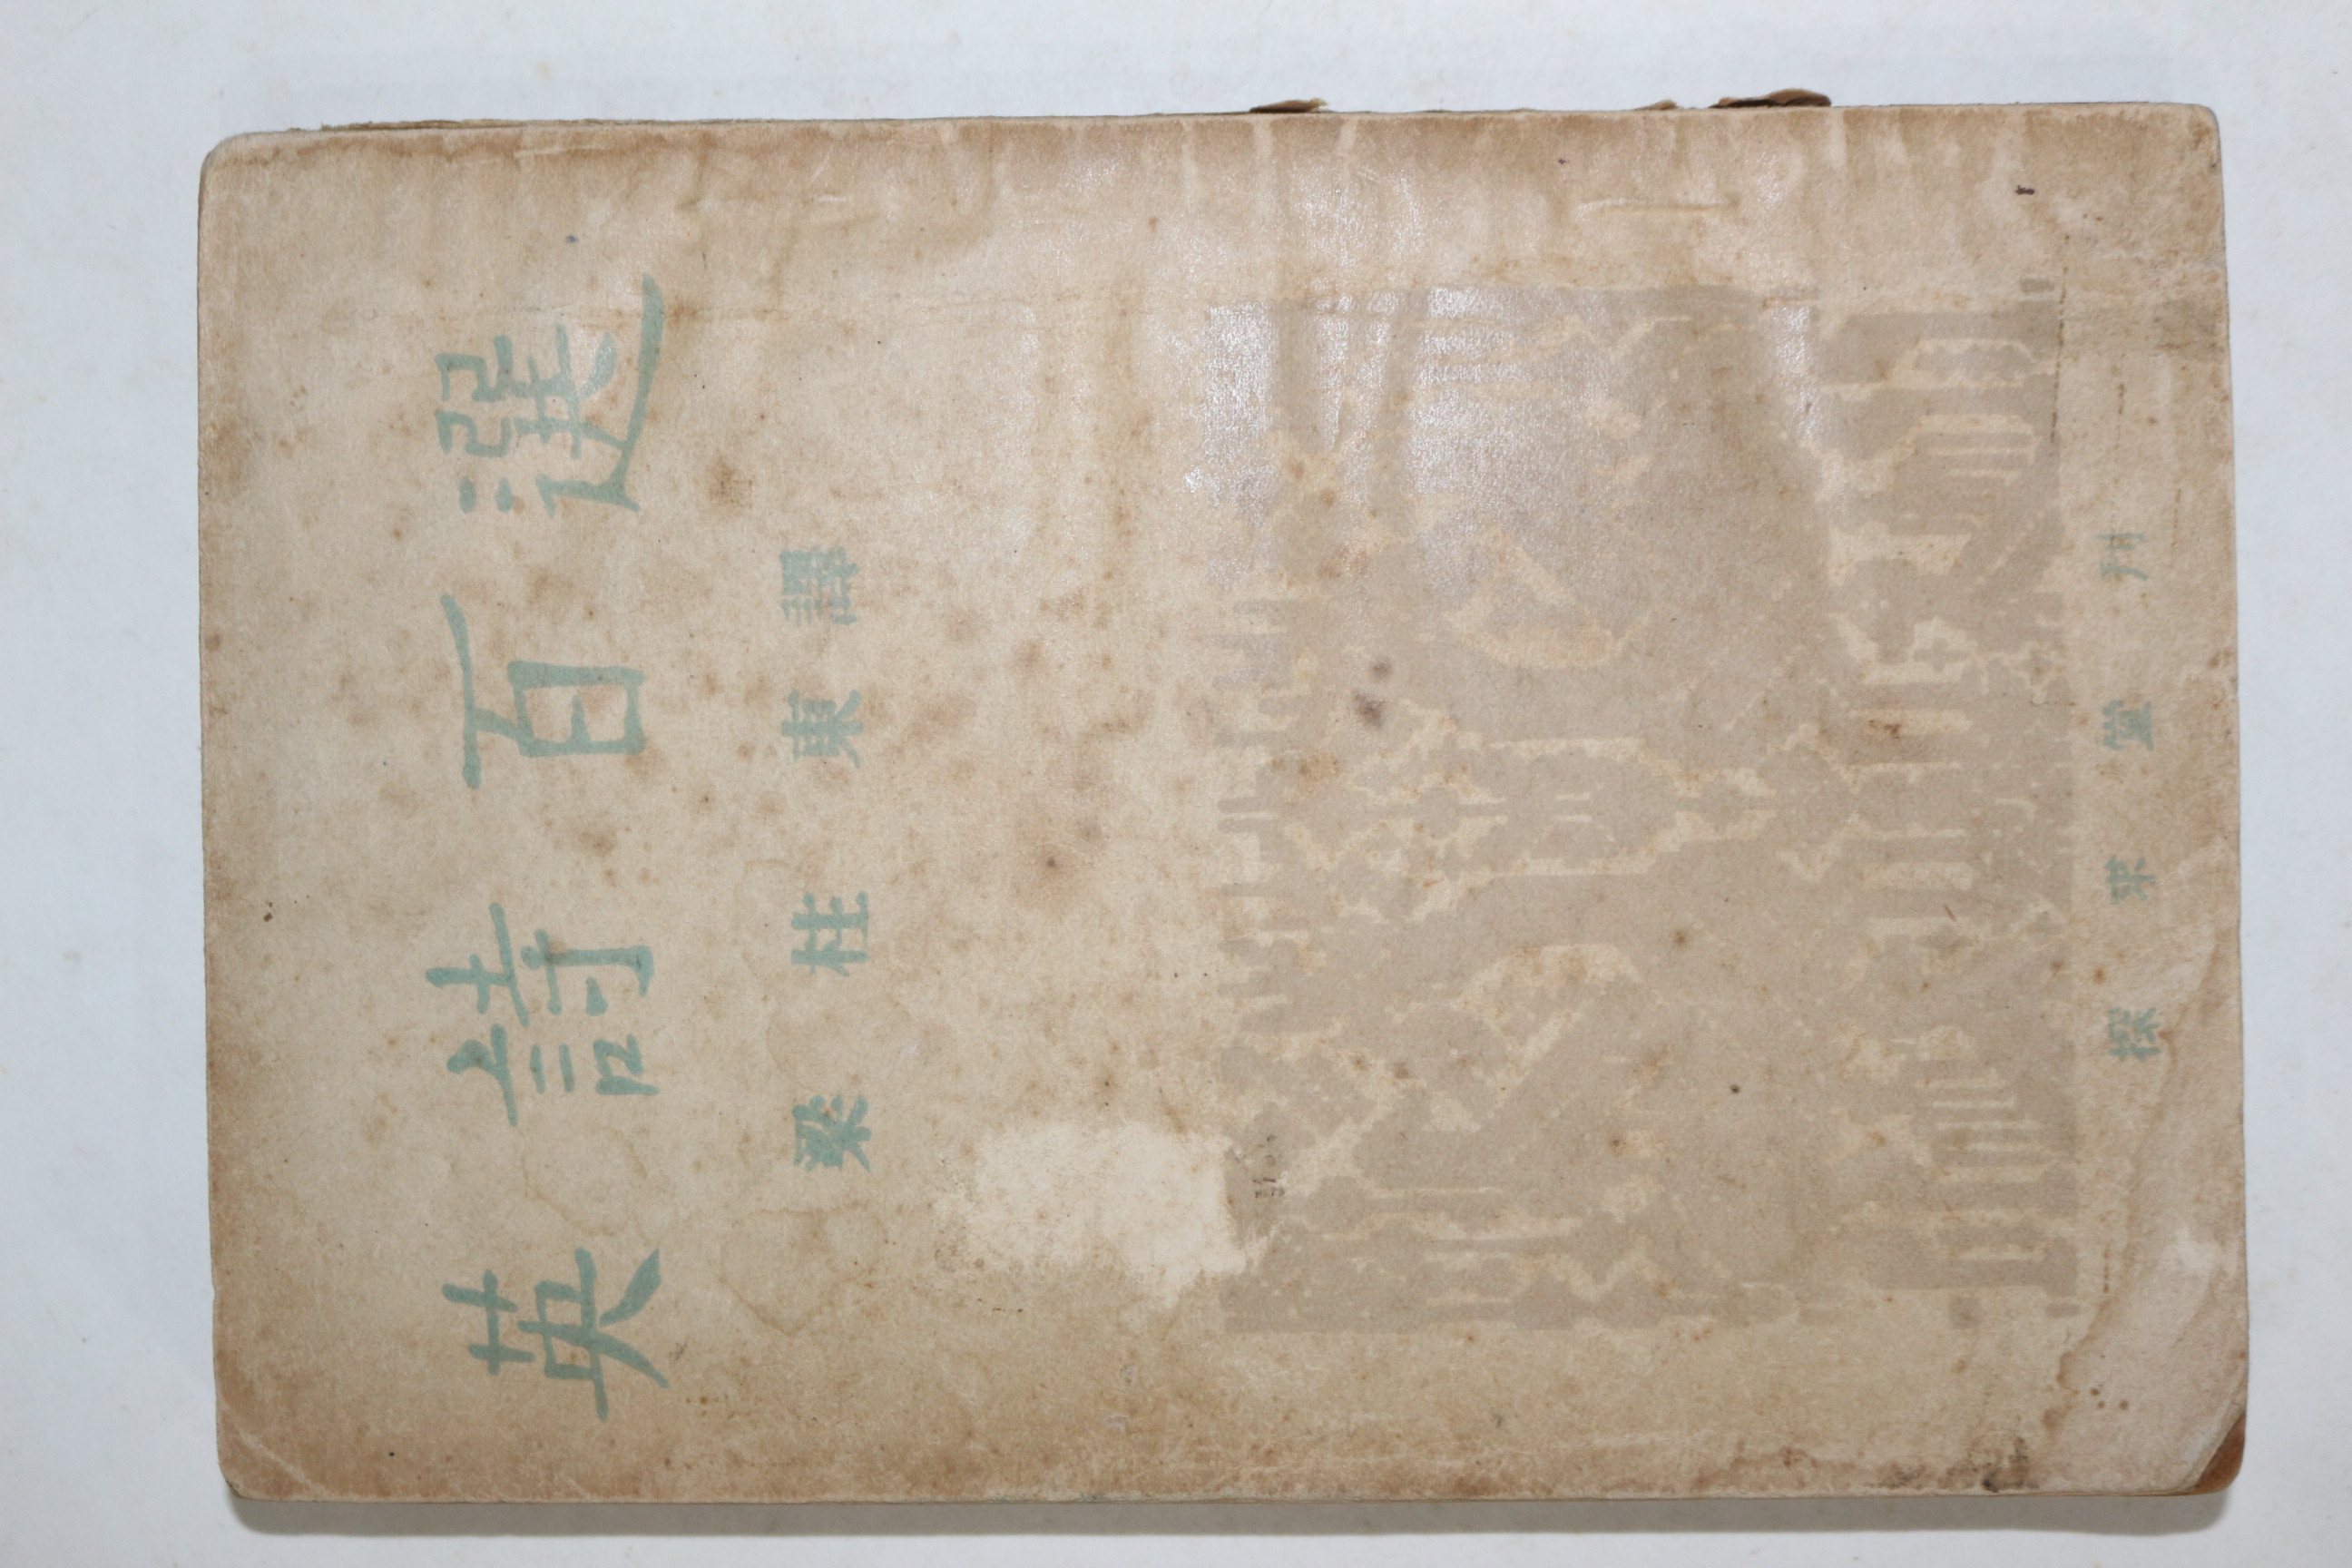 英詩百選
梁柱東譯
探求堂刊